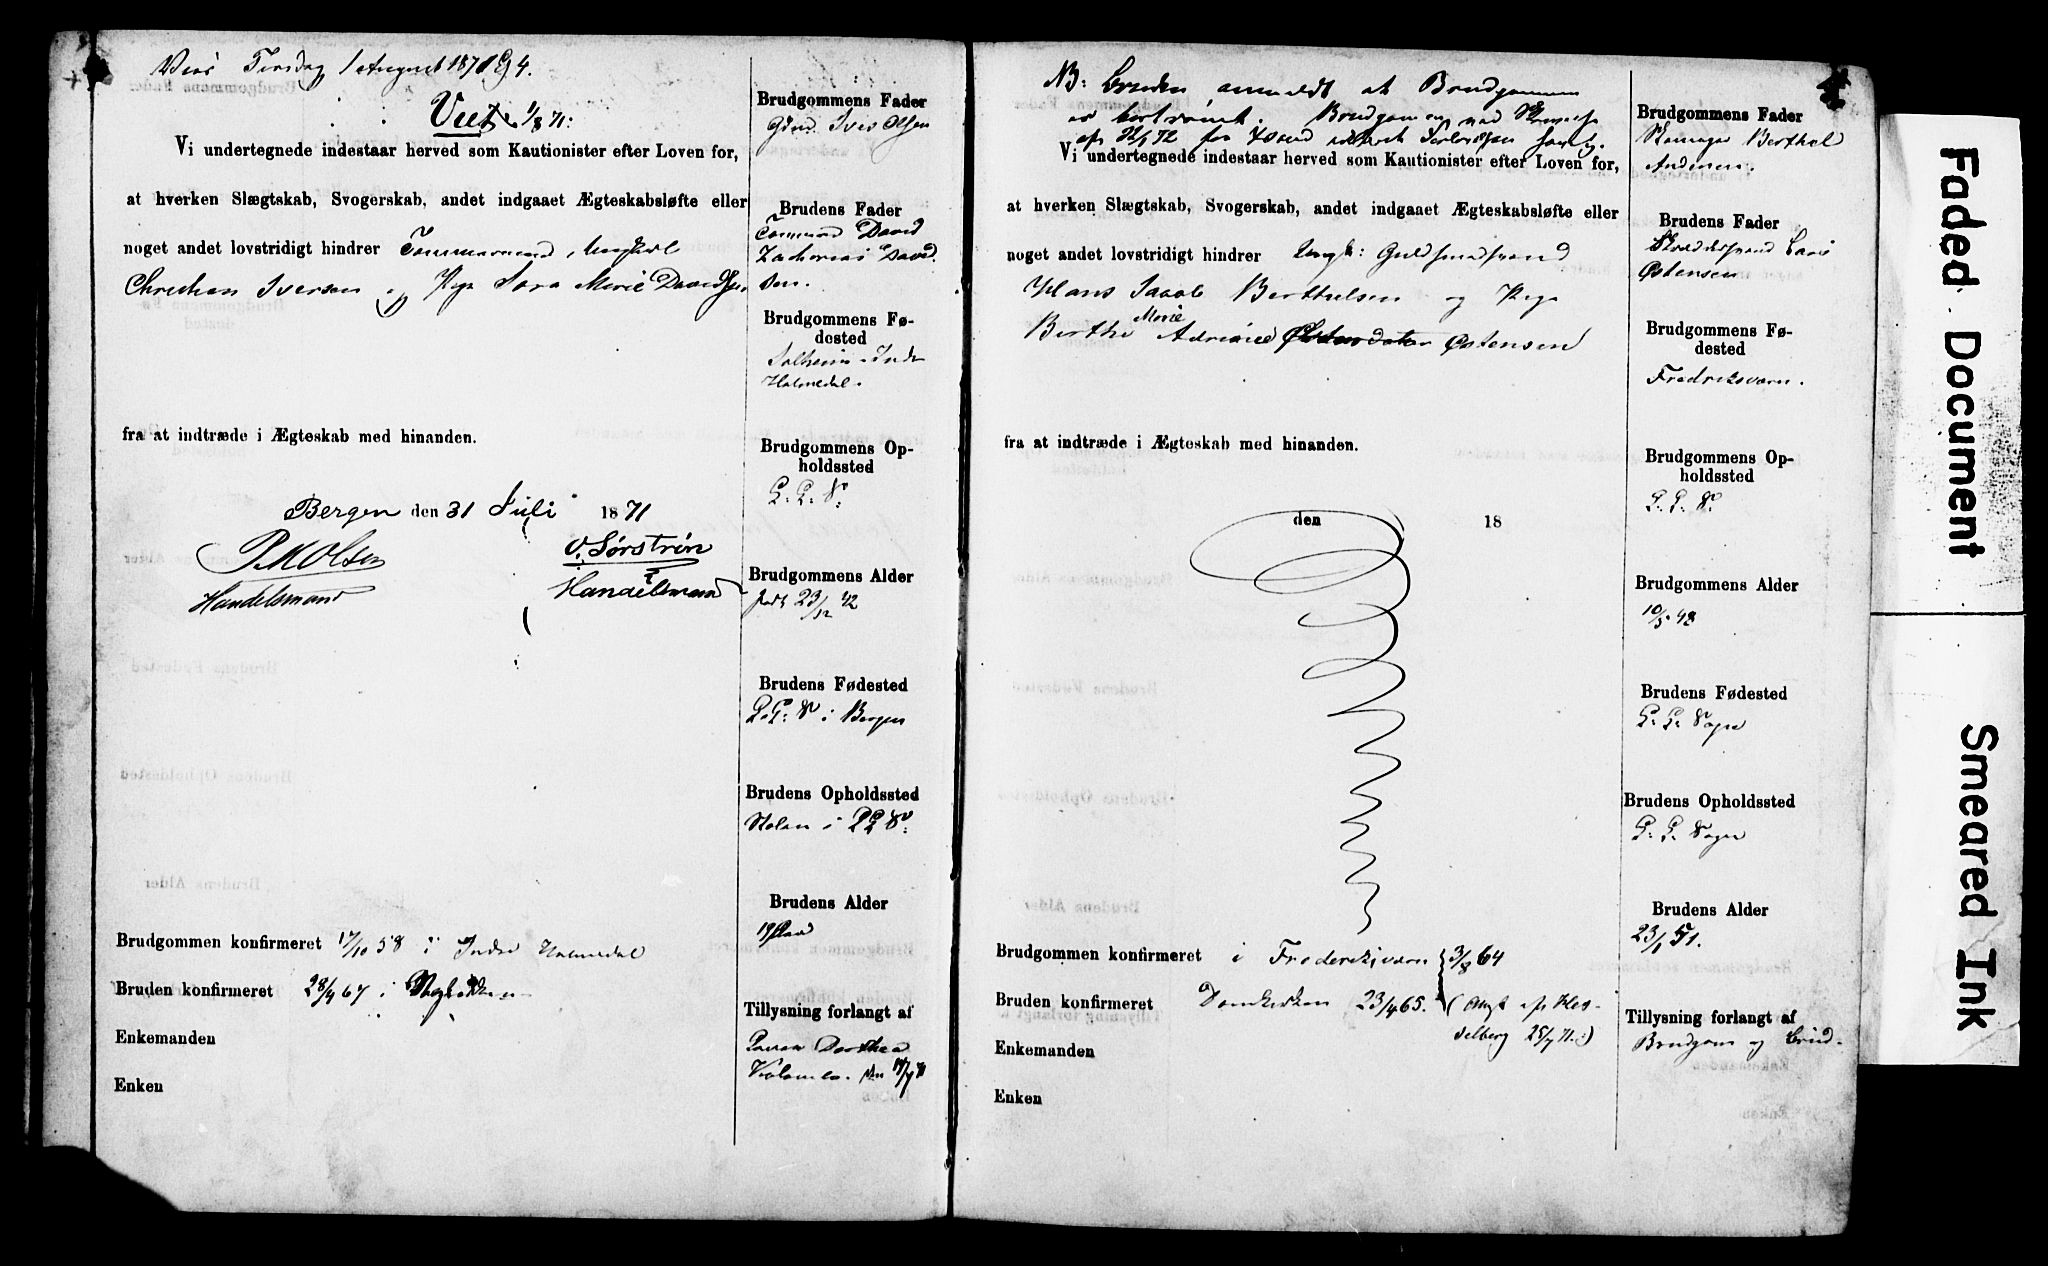 Vies Tirsdag 1 August 1871 Kl 4.
Viet 1/8 71:
Vi undertegnede indestaar herved som Kautionister efter Loven for,
at hverken Slægtskab, Svogerskab, andet indgaaet Ægteskabsløfte eller
noget andet lovstridigt hindrer Tømmermand, Ungkarl
Christian Iversen og Pige Sara Marie Davidsen
fra at indtræde i Ægteskab med hinanden.
Bergen den 31 Juli 1871
P. M Olsen
Handelsmand
O. Sørstrøn
Handelsmand
Brudgommen konfirmeret 17/10 58 i Indre Holmedal
Bruden konfirmeret 28/4 67 i
Enkemanden
Enken
Brudgommens Fader
Gdmd. Iver Olsen
Brudens Fader
David
Zacharias David-
sen.
Brudgommens Fø-
dested
Solheim i Indre
Holmedal.
Brudgommens Op-
holdssted
Brudgommens Alder
født 23/12 42
Brudens Fødested
i Bergen
Brudens Opholdssted
i
Brudens Alder
19 Aar
Tillysning forlangt af
Dorthea
NB: Bruden anmeldt at Brudgommen
er bortrømt. Brudgommen
Vi undertegnede indestaar herved som Kautionister efter Loven for,
at hverken Slægtskab, Svogerskab, andet indgaaet Ægteskabsløfte eller
noget andet lovstridigt hindrer Ungk: Guldsmedsvend
Hans Jacob Berthelsen og Pige
Berthe Marie Østensen
fra at indtræde i Ægteskab med hinanden.
den 18
Brudgommen konfirmeret i Frederiksværn 3/8 64
Bruden konfirmeret Domkirken 23/4 65. (Angt af Hes-
selberg 25/7 71.)
Enkemanden
Enken
Brudgommens Fader
Skomager Berthel
Andersen.
Brudens Fader
Skræddersvend Lars
Østensen
Brudgommens Fø-
dested
Fredriksværn.
Brudgommens Op-
holdssted
Brudgommens Alder
10/5 48
Brudens Fødested
Sogn
Brudens Opholdssted
Sogn
Brudens Alder
23/1 51.
Tillysning forlangt af
Brudgom og Brud.
Faded Document
Smeared Ink